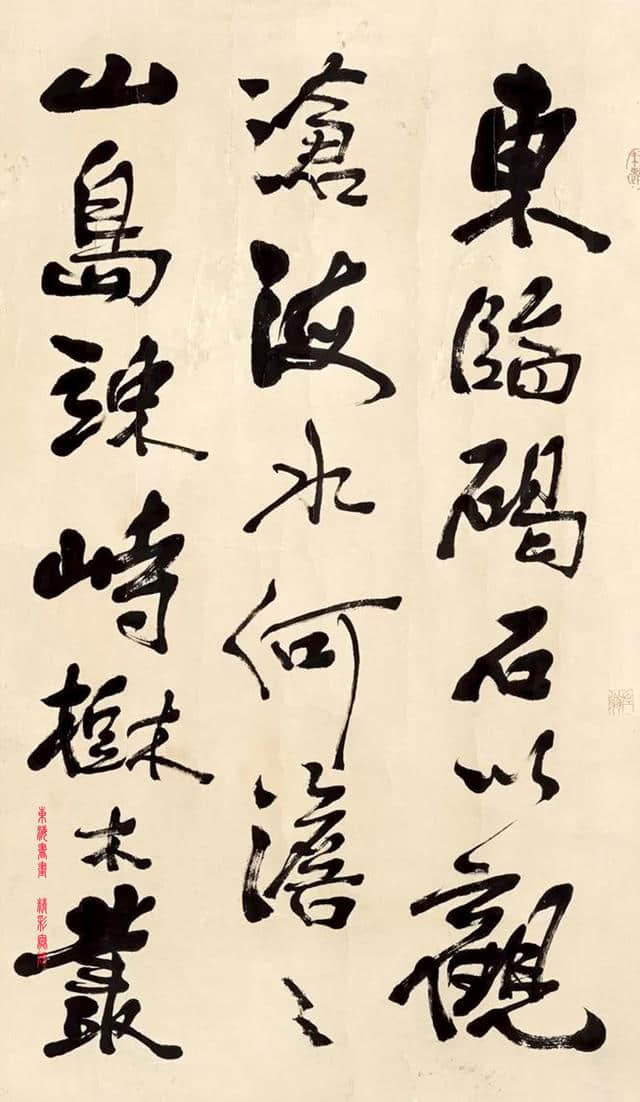 東臨碣石以觀
滄海水何澹〻
山島竦峙樹木叢
東海書畫 精彩